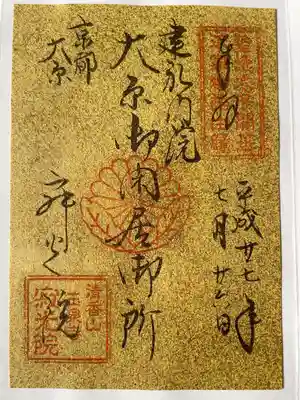 奉拝
平成廿七年
七月廿六日
建礼門院
大原御閑居御所
京都
大原
寂光院
清香山
寂光院